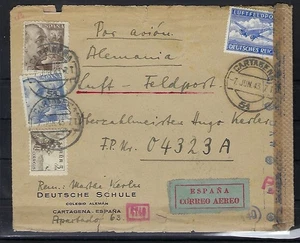 Por avión
Alemania
Luft - Feldpost
LUFTFELDPOST
DEUTSCHES REICH
CARTAGENA
JUN 43
Oberzahlmeister Hugo Kerler
F.P. Nr. 04323A
Rem: Martha Kerler
DEUTSCHE SCHULE
COLEGIO ALEMÁN
CARTAGENA - ESPAÑA
Apartado 63
ESPAÑA
CORREO AEREO